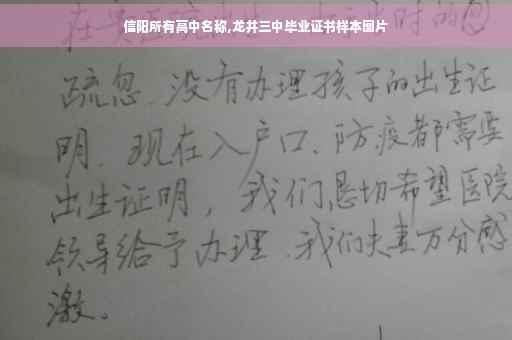 信阳所有高中名称,龙井三中毕业证书样本图片
疏忽.没有办理孩子的出生证
明.现在入户口、防疫都需要
出生证明，我们恳切希望医院
领导给予办理.我们夫妻万分感
激。